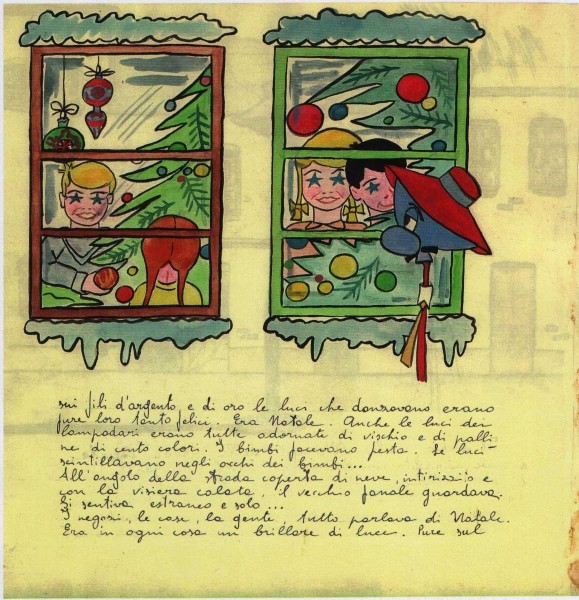 sui fili d'argento, e di oro le luci che danzavano erano
pure loro tanto felici. Era Natale. Anche le luci dei
lampadari erano tutte adornate di vischio e di palli
ne di cento colori. I bimbi facevano festa. Le luci
scintillavano negli occhi dei bimbi...
All'angolo della strada coperta di neve, intirizzito e
con la visiera calata, il vecchio fanale guardava.
Si sentiva estraneo e solo...
I negozi, le case, la gente, tutto parlava di Natale.
Era in ogni cosa un brillare di luce. Pure sul